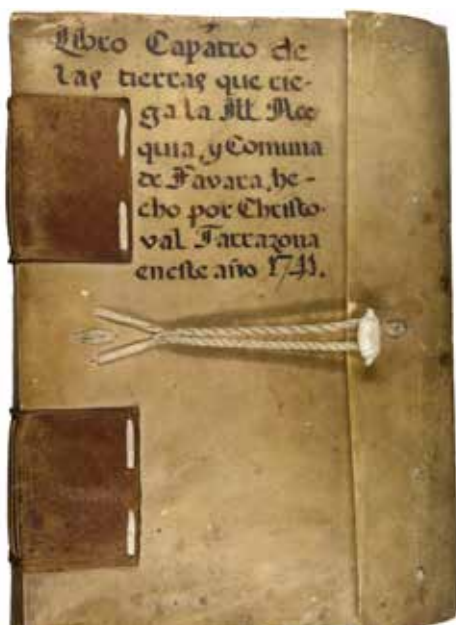 Libro Capatro de
las tierras que rie-
ga la Ill. Ace
quia, y Comuna
de Favara, he-
cho por Christo-
val Tarrazona
en este año 1741.